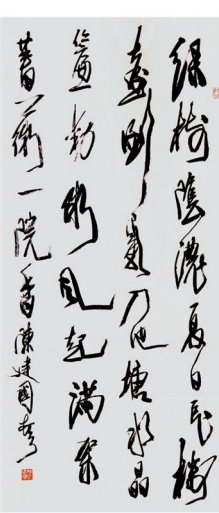 綠樹陰濃夏日長樓
臺倒影入池塘水晶
簾動微風起滿架
薔薇一院香陳建國書